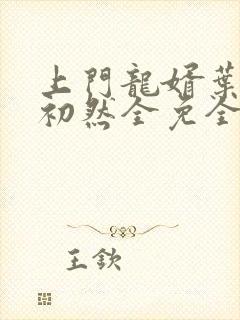 上門龍婿葉
初然全免全
王欽